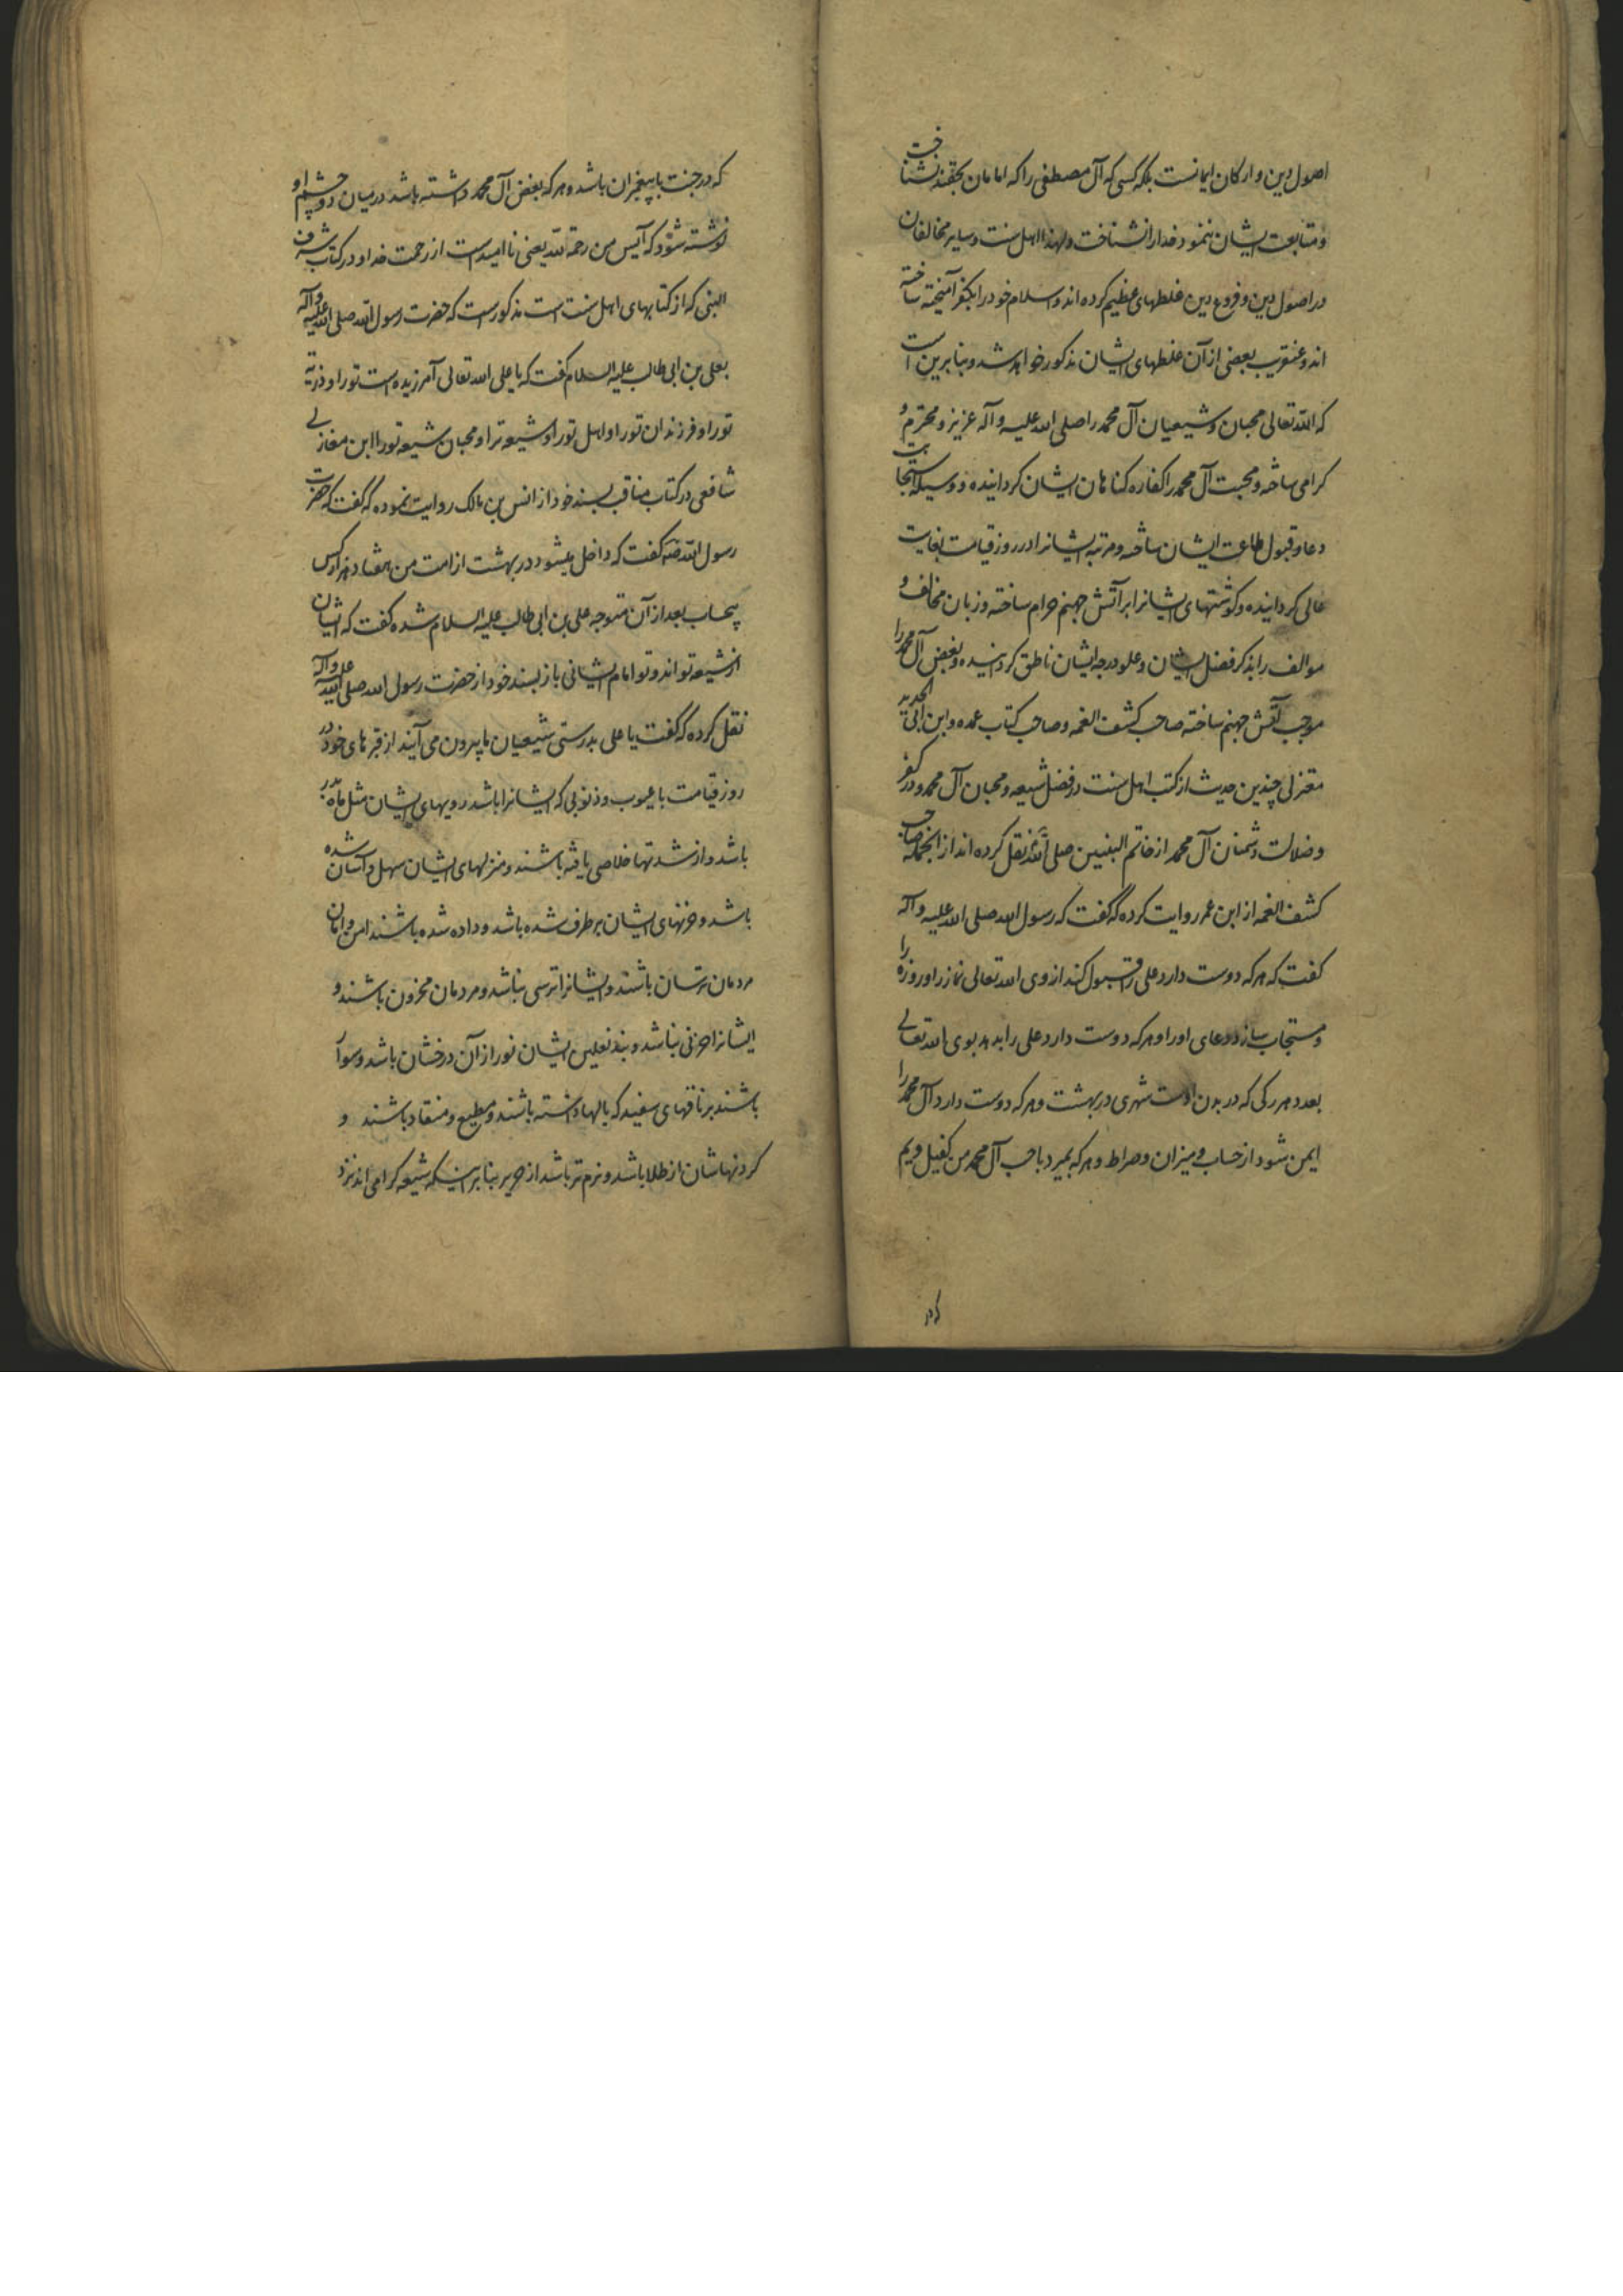 اصول دین و ارکان ایمانست بلکه کسی که آل مصطفی را که امامان بحقند نشناخت
و متابعت ایشان ننمود خدا را نشناخت و لهذا اهل سنت و سایر مخالفان
در اصول دین و فروع دین غلطهای عظیم کرده اند و اسلام خود را بکفر آمیخته ساخته
اند و عنقریب بعضی از آن غلطهای ایشان مذکور خواهد شد و بنابرین است
که الله تعالی محبان و شیعیان آل محمد را صلی الله علیه و آله عزیز و محترم و
کرامی ساخته و محبت آل محمد را کفاره کناهان ایشان کردانیده و وسیله استجابت
دعا و قبول طاعت ایشان ساخته و مرتبه ایشانرا در روز قیامت بغایت
عالی کردانیده و کوشتهای ایشانرا بر آتش جهنم حرام ساخته و زبان مخالف و
موالف را بذکر فضل ایشان و علو درجه ایشان ناطق کردانیده و بغض آل محمد را
موجب آتش جهنم ساخته صاحب کشف الغمه و صاحب کتاب عمده و ابن ابی الحدید
معتزلی چندین حدیث از کتب اهل سنت در فضل شیعه و محبان آل محمد و در کفر
و ضلالت دشمنان آل محمد از خاتم النبیین صلی الله نقل کرده اند از انجمله صاحب
کشف الغمه از ابن عمر روایت کرده که گفت که رسول الله صلی الله علیه و آله
کفت که هر که دوست دارد علی را قبول کند از وی الله تعالی نماز را و روزه را
و مستجاب سازد دعای او را و هر که دوست دارد علی را بدهد بوی الله تعالی
بعدد هر رکی که در بدن اوست شهری در بهشت و هر که دوست دارد آل محمد را
ایمن شود از حساب و میزان و صراط و هر که بمیرد با حب آل محمد من کفیل ویم
که در جنت با پیغمبران باشد و هر که بغض آل محمد داشته باشد در میان دو چشم او
نوشته شود که آیس من رحمة الله یعنی ناامیدست از رحمت خدا و در کتاب شرف
النبی که از کتابهای اهل سنت است مذکورست که حضرت رسول الله صلی الله علیه و آله
بعلی بن ابی طالب علیه السلام کفت که یا علی الله تعالی آمرزیده است تو را و ذریه
تو را و فرزندان تو را و اهل تو را و شیعه ترا و محبان شیعه تو را ابن مغازلی
شافعی در کتاب مناقب بسند خود از انس بن مالک روایت نموده که گفت که حضرت
رسول الله کفت که داخل میشود در بهشت از امت من هفتاد هزار کس
بیحساب بعد از آن متوجه علی بن ابی طالب علیه السلام شده کفت که ایشان
از شیعه تو اند و تو امام ایشانی باز بسند خود از حضرت رسول الله صلی الله علیه و آله
نقل کرده که گفت یا علی بدرستی شیعیان ما بیرون می آیند از قبرهای خود در
روز قیامت با عیوب و ذنوبی که ایشانرا باشد رویهای ایشان مثل ماه بدر
باشد و از شدتها خلاصی یافته باشند و منزلهای ایشان سهل و آسان شده
باشد و حزنهای ایشان برطرف شده باشد و داده شده باشند امن و امان
مردمان ترسان باشند و ایشانرا ترسی نباشد و مردمان محزون باشند و
ایشانرا حزنی نباشد و بند نعلین ایشان نور از آن درخشان باشد و سوار
باشند بر ناقهای سفید که بالها داشته باشند و مطیع و منقاد باشند و
کردنهاشان از طلا باشد و نرم تر باشد از حریر بنابر اینکه شیعه کرامی اند نزد